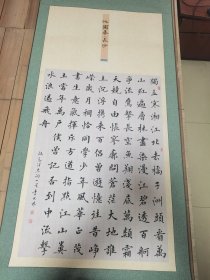 沁園春長沙
獨立寒湘江北去橘子洲頭看萬
山紅遍層林盡染漫江碧透百舸
爭流鷹擊長空魚翔淺底萬類霜
天競自由悵寥廓問蒼茫大地誰
主沉浮攜來百侶曾遊憶往昔崢
嶸歲月稠恰同學少年風華正茂
書生意氣揮斥方遒指點江山糞
土當年萬戶侯曾記否到中流擊
水浪遏飛舟